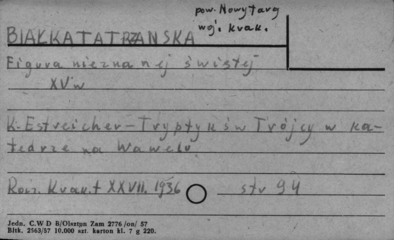 pow. Nowy targ
woj. krak.
BIAŁKA TATRZAŃSKA
Figura nieznanej świętej
XVw
K. Estreicher – Tryptyk św Trójcy w ka-
tedrze na Wawelu
Rocz. Krak. t XXVII. 1936 str 94
Jedn. C.W D B/Olsztyn Zam 2776/on/ 57
Bltk. 2563/57 10.000 szt. karton kl. 7 g 220.